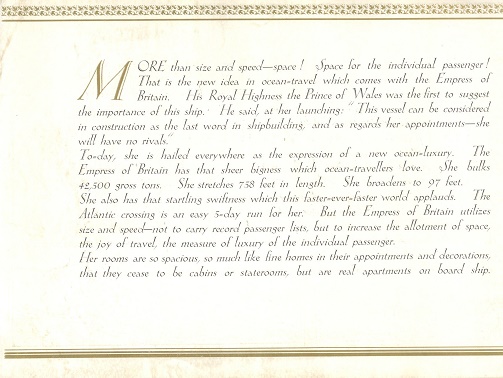 MORE than size and speed—space! Space for the individual passenger!
That is the new idea in ocean-travel which comes with the Empress of
Britain. His Royal Highness the Prince of Wales was the first to suggest
the importance of this ship. He said, at her launching: "This vessel can be considered
in construction as the last word in shipbuilding, and as regards her appointments—she
will have no rivals."
To-day, she is hailed everywhere as the expression of a new ocean-luxury. The
Empress of Britain has that sheer bigness which ocean-travellers love. She bulks
42,500 gross tons. She stretches 758 feet in length. She broadens to 97 feet.
She also has that startling swiftness which this faster-ever-faster world applauds. The
Atlantic crossing is an easy 5-day run for her. But the Empress of Britain utilizes
size and speed—not to carry record passenger lists, but to increase the allotment of space,
the joy of travel, the measure of luxury of the individual passenger.
Her rooms are so spacious, so much like fine homes in their appointments and decorations,
that they cease to be cabins or staterooms, but are real apartments on board ship.